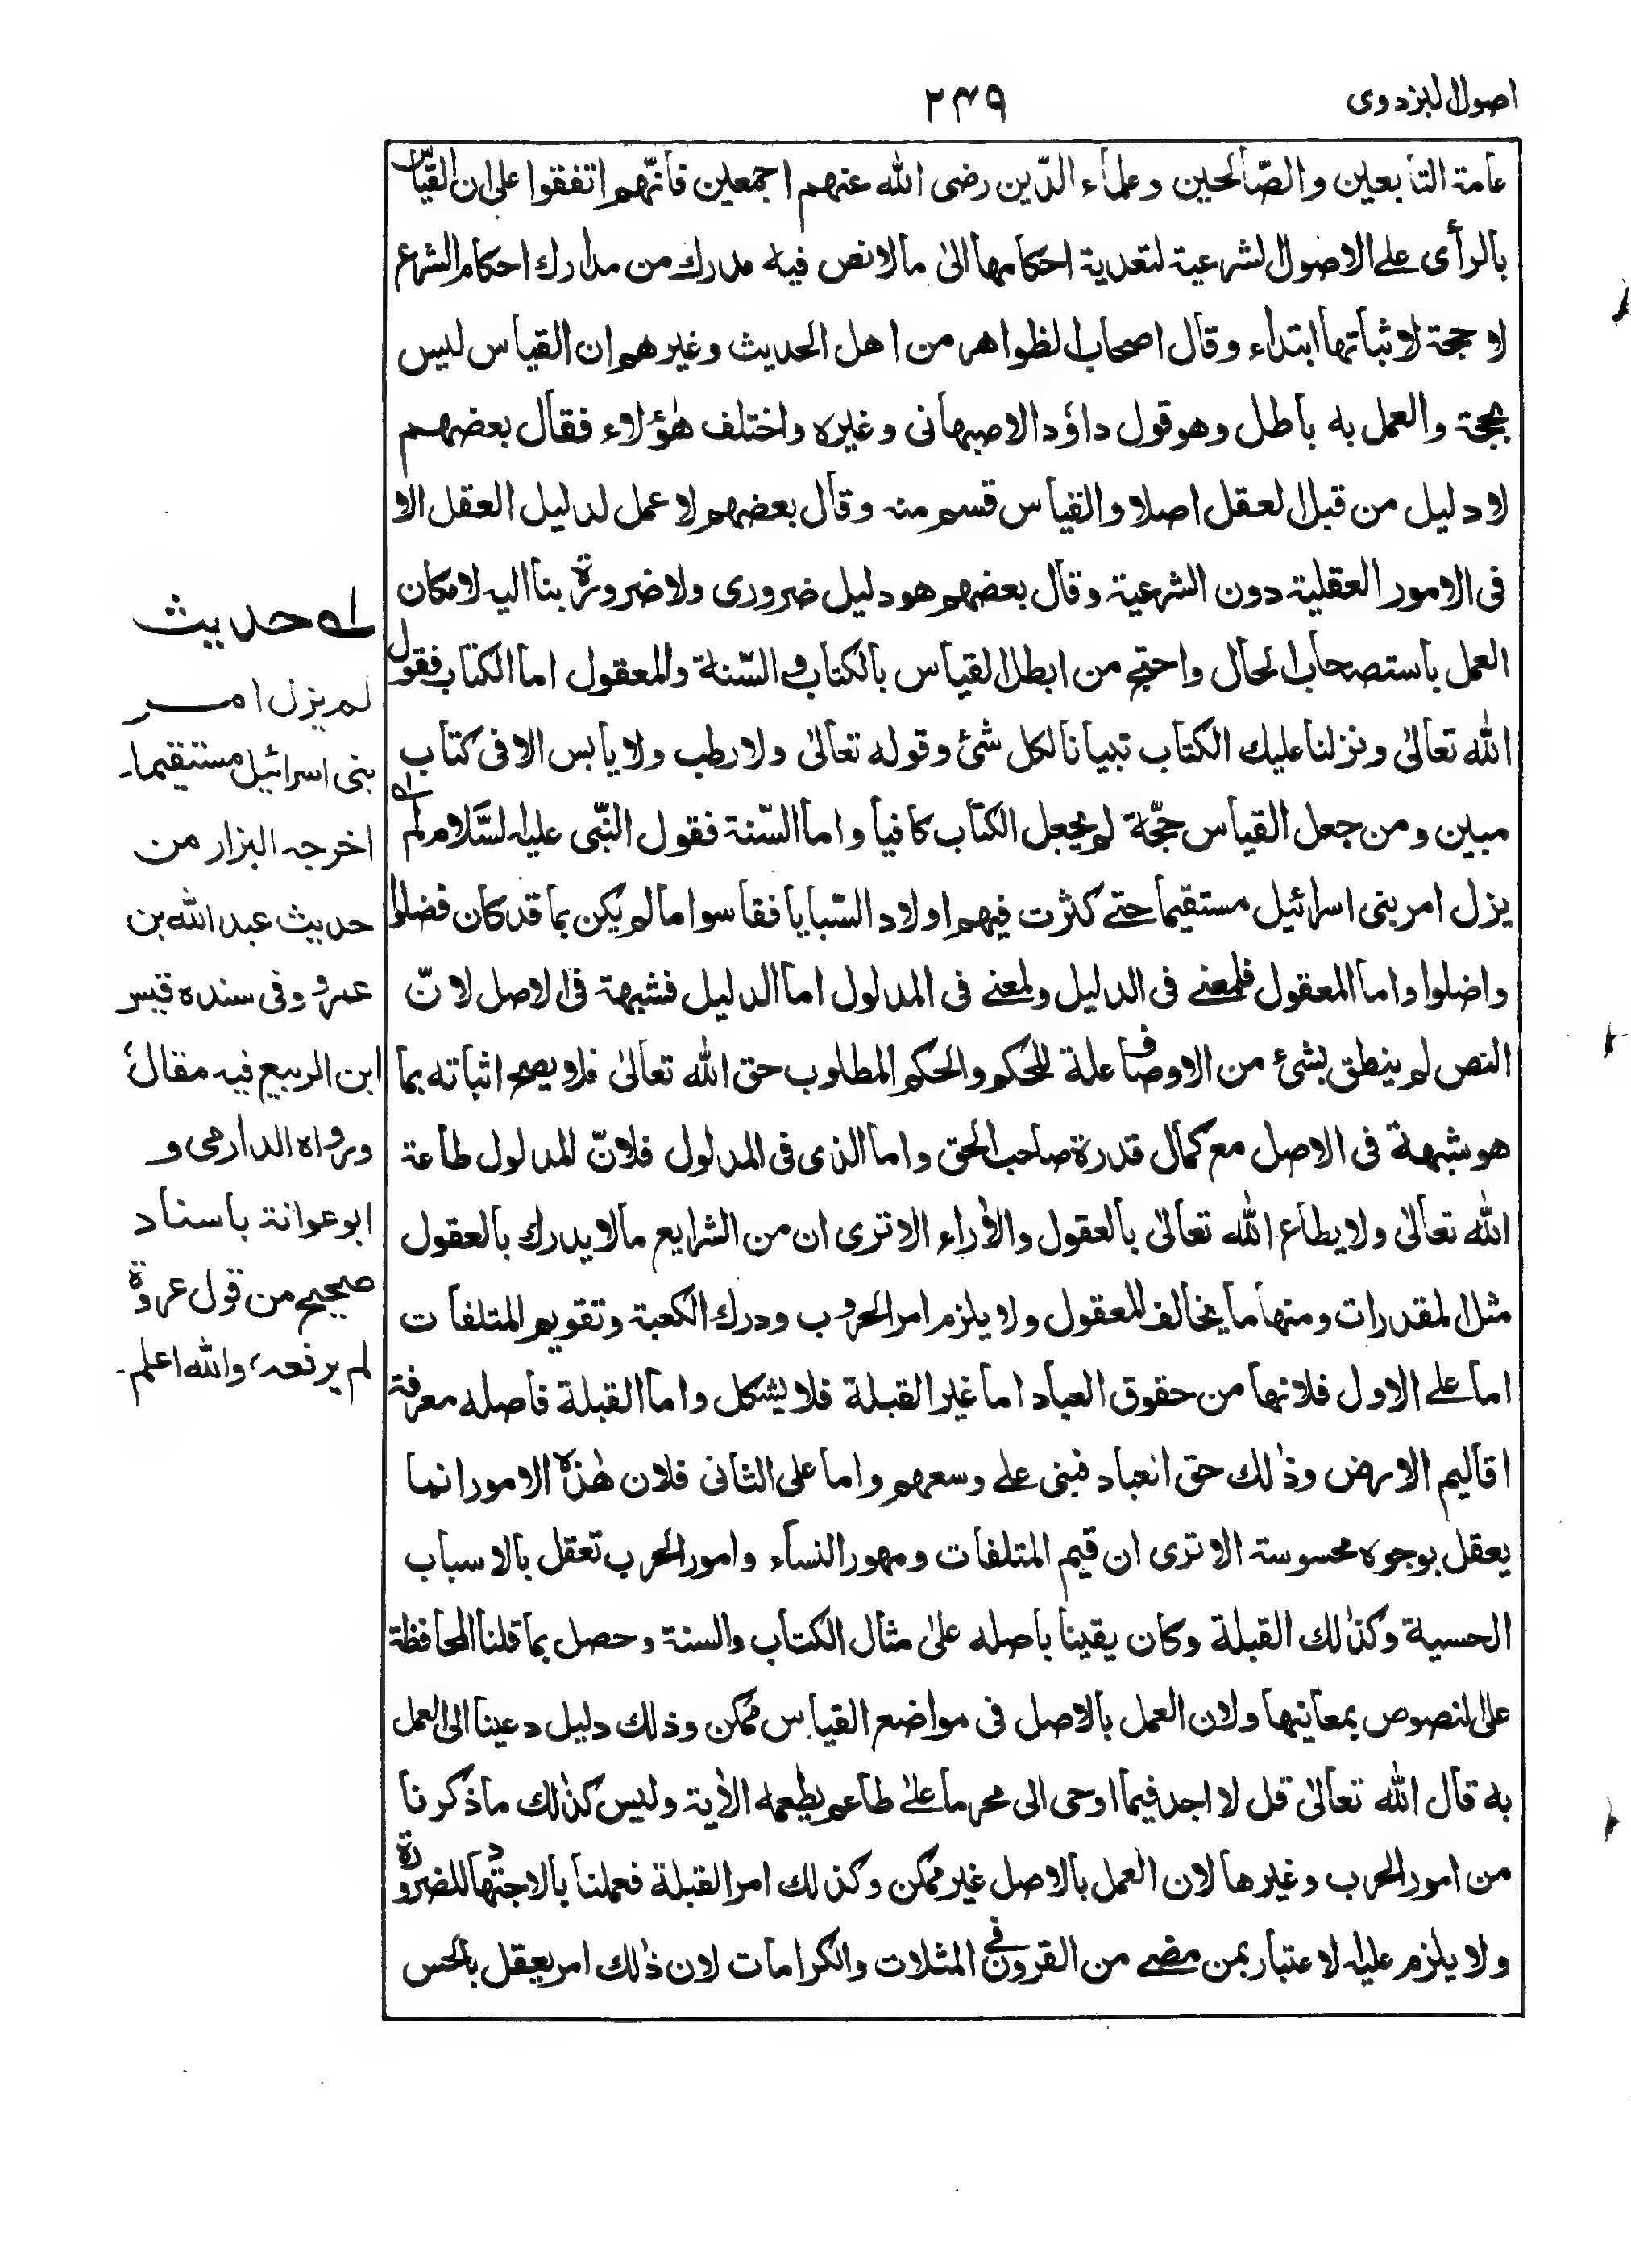 اصول البزدوی
۲۴۹
عامة التابعين والصّالحين وعلماء الدّين رضى الله عنهم اجمعين فانّهم اتفقوا على ان القياس
بالرأى على الاصول الشرعية لتعدية احكامها الىٰ مالا نص فيه مدرك من مدارك احكام الشرع
لا حجة لاثباتها ابتداء وقال اصحاب الظواهر من اهل الحديث وغيرهم ان القياس ليس
بحجة والعمل به باطل وهو قول داؤد الاصبهانى وغيره واختلف هٰؤلاء فقال بعضهم
لا دليل من قبل العقل اصلا والقياس قسم منه وقال بعضهم لا عمل لدليل العقل الا
فى الامور العقلية دون الشرعية وقال بعضهم هو دليل ضرورى ولا ضرورة بنا اليه لامكان
العمل باستصحاب الحال واحتج من ابطل القياس بالكتاب والسّنة والمعقول اما الكتاب فقول
الله تعالىٰ ونزلنا عليك الكتاب تبيانا لكل شئ وقوله تعالىٰ ولا رطب ولا يابس الا فى كتاب
مبين ومن جعل القياس حجّة لم يجعل الكتاب كافيا واما السّنة فقول النّبى عليه السّلام لم
يزل امر بنى اسرائيل مستقيما حتے كثرت فيهم اولاد السّبايا فقاسوا ما لم يكن بما قد كان فضلوا
واضلوا واما المعقول فلمعنے فى الدليل ولمعنے فى المدلول اما الدليل فشبهة فى الاصل لانّ
النص لم ينطق بشئ من الاوصاف علة للحكم والحكم المطلوب حق الله تعالىٰ فلا يصح اثباته بما
هو شبهة فى الاصل مع كمال قدرة صاحب الحق واما الذى فى المدلول فلانّ المدلول طاعة
الله تعالىٰ ولا يطاع الله تعالىٰ بالعقول والاٰراء الا ترى ان من الشرايع مالا يدرك بالعقول
مثل المقدرات ومنها ما يخالف المعقول ولا يلزم امر الحروب ودرك الكعبة وتقويم المتلفات
اما علے الاول فلانها من حقوق العباد اما غير القبلة فلا يشكل واما القبلة فاصله معرفة
اقاليم الارض وذٰلك حق العباد فبنى علے وسعهم واما على الثانى فلان هٰذه الامور انما
يعقل بوجوه محسوسة الا ترى ان قيم المتلفات ومهور النساء وامور الحرب تعقل بالاسباب
الحسية وكذٰلك القبلة وكان يقينا باصله علىٰ مثال الكتاب والسنة وحصل بما قلنا المحافظة
على النصوص بمعانيها ولان العمل بالاصل فى مواضع القياس ممكن وذلك دليل دعينا الى العمل
به قال الله تعالىٰ قل لا اجد فيما اوحى الى محرما علىٰ طاعم يطعمه الاٰية وليس كذٰلك ما ذكرنا
من امور الحرب وغيرها لان العمل بالاصل غير ممكن وكذلك امر القبلة فعملنا بالاجتهاد للضرورة
ولا يلزم عليه الاعتبار بمن مضے من القرون فے المثلات والكرامات لان ذٰلك امر يعقل بالحس
لے حديث
لم يزل امر
بنى اسرائيل مستقيما۔
اخرجه البزار من
حديث عبد الله بن
عمرو وفى سنده قيس
ابن الربيع فيه مقالٌ
ورواه الدارمى و
ابو عوانة باسناد
صحيح من قول عروة
لم يرفعه، والله اعلم۔